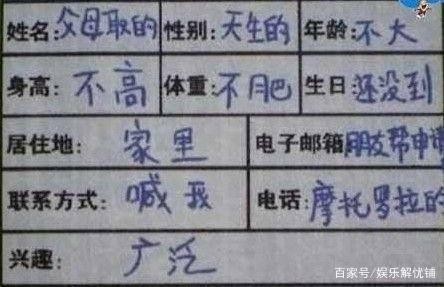 姓名:父母取的 性别:天生的 年龄:不大
身高:不高 体重:不肥 生日:还没到
居住地:家里 电子邮箱朋友帮申
联系方式:喊我 电话:摩托罗拉的
兴趣:广泛
百家号/娱乐解忧铺